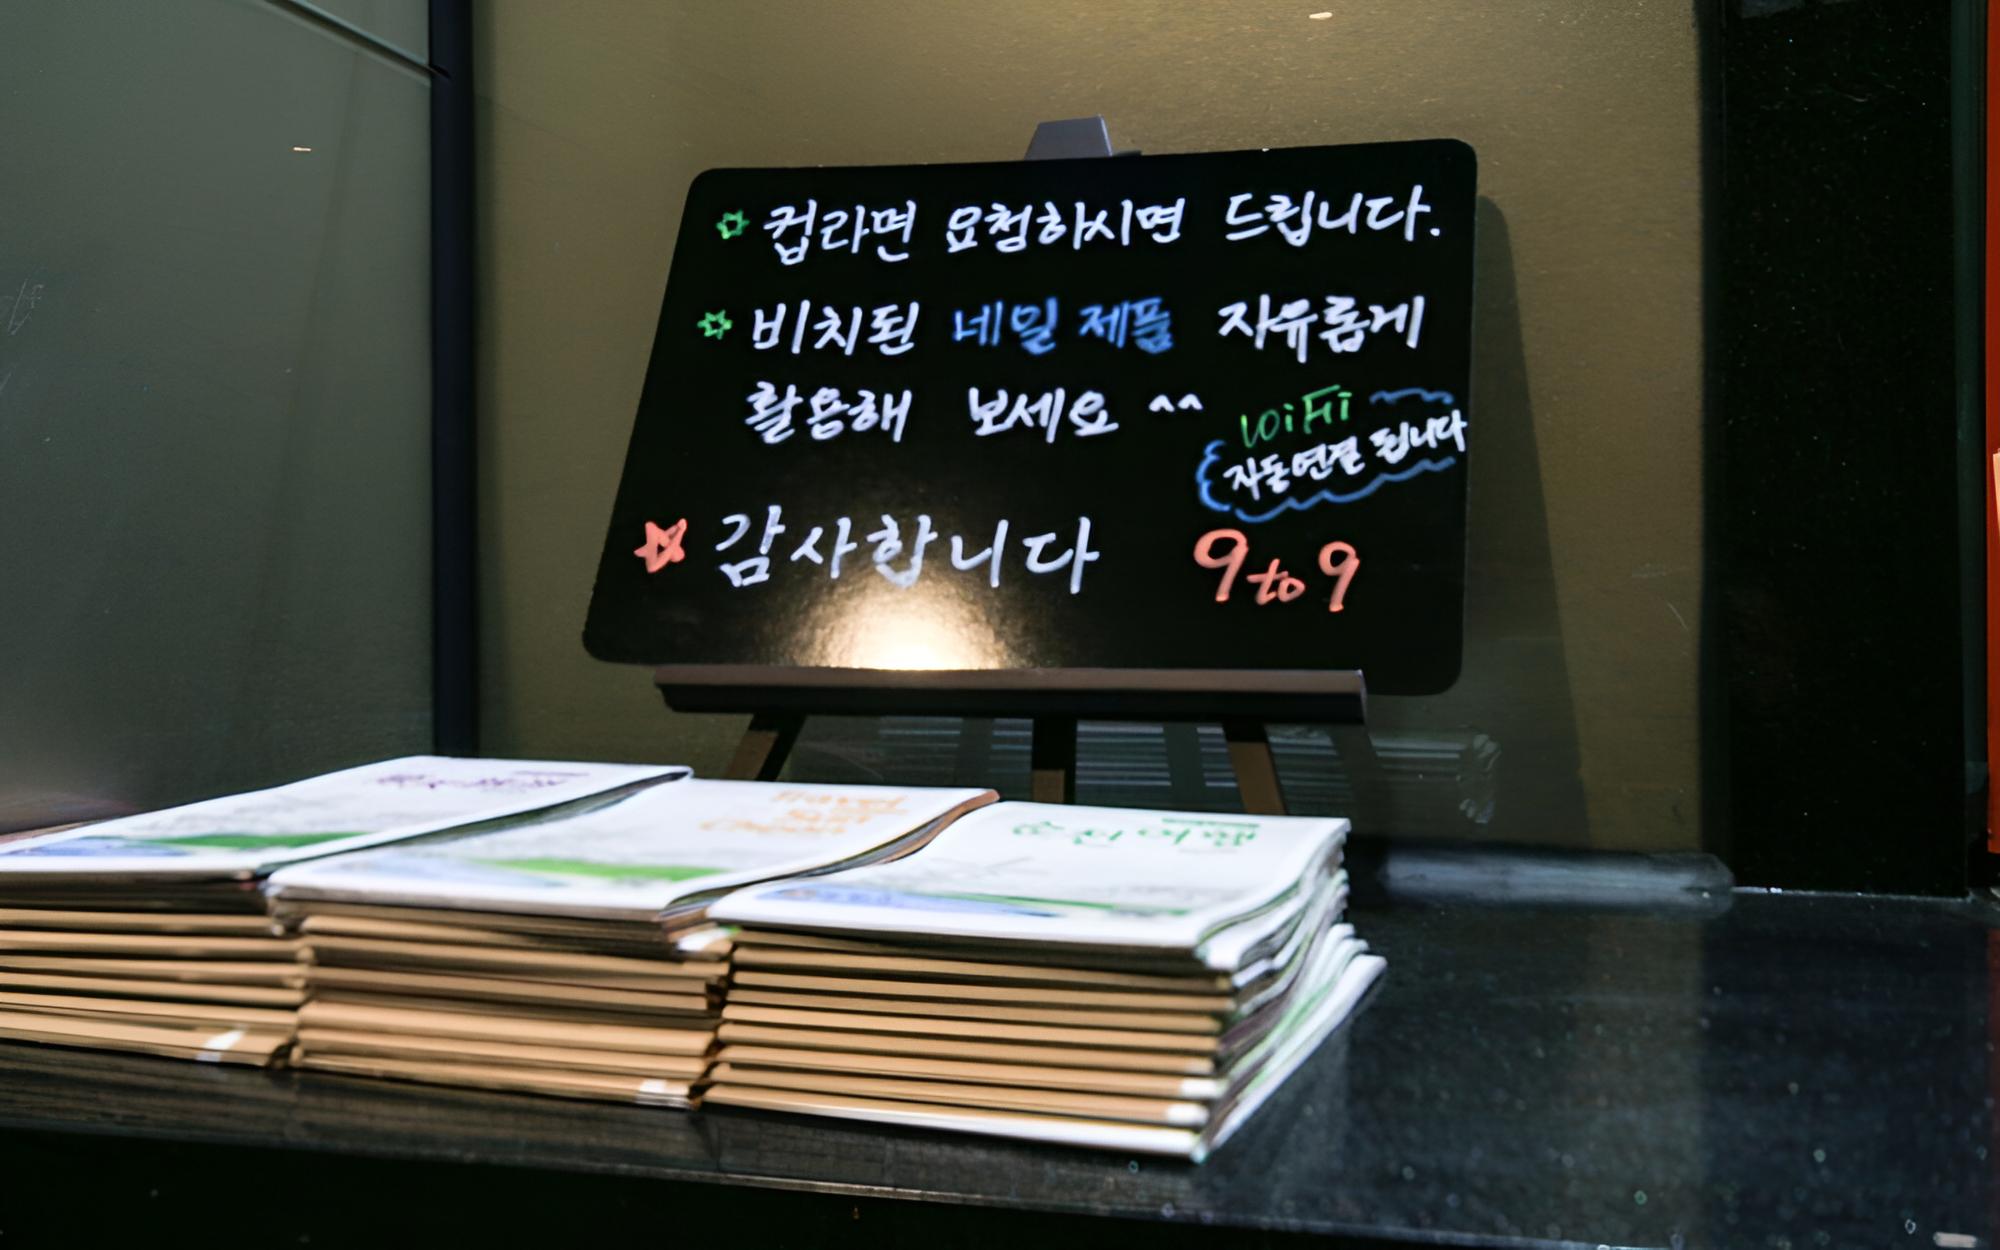 컵라면 요청하시면 드립니다.
비치된 네일 제품 자유롭게
활용해 보세요 ^^
WiFi
자동연결 됩니다
감사합니다
9 to 9